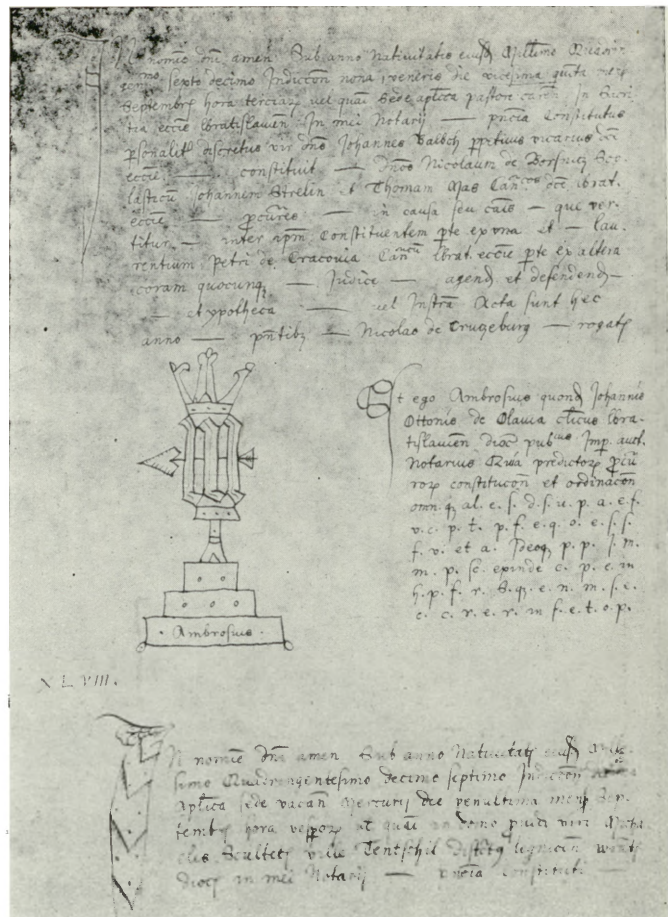 In nomine dni amen Sub anno Nativitatis eiusd Millimo Quadrin
mo septo decimo Indiccon nona veneris die vicesima quta
Septembr hora terciar vel quasi Sede aplica pastore caren In Sacri
stia eccie Wratislavien In mei Notarij — pncia Constitutus
psonalit discretus vir dns Johannes ppetuus vicarius dce
eccie — constituit — dnos Nicolaum de Sco
lasticu Johannem Strelin et Thomam Mas Canicos dce wrat.
eccie — pcures — in causa seu cais — que ver
titur — inter ipm Constituentem pte ex una et — lau
rentium Petri de Cracovia Canicu wrat. eccie pte ex altera
coram quocunq — Judice — agend et defendend —
— et ypotheca — vel Instra Acta sunt hec
anno — pntib — Nicolao de Cruczeburg — rogat
Et ego Ambrosius quond Johannis
Ottonis de Olavia clicus wra-
tislavien dioc pubcus Imp. auct.
Notarius Quia predictor pcu
ror constitucon et ordinacon
omn. q al. e. s. d. s. u. p. a. e. f.
v. c. p. t. p. f. e. q. o. e. s. s.
f. v. et a. Ideoq p. p. J. m.
m. p. sc. exinde c. p. e. in
h. p. f. r. S. q. e. n. m. s. e.
c. c. r. e. r. in f. e. t. o. p.
· Ambrosius ·
XLVIII.
In nomine dni amen Sub anno Nativitat eiusd Mille-
simo Quadringentesimo decimo septimo Indiccon
Aplica sede vacan Mercurij die penultima mens Sep-
temb hora vespor vel quasi in domo pvidi viri
Sculteti ville Tentschil dist lignicin wrat
dioc in mei Notarij — pncia Constituti —